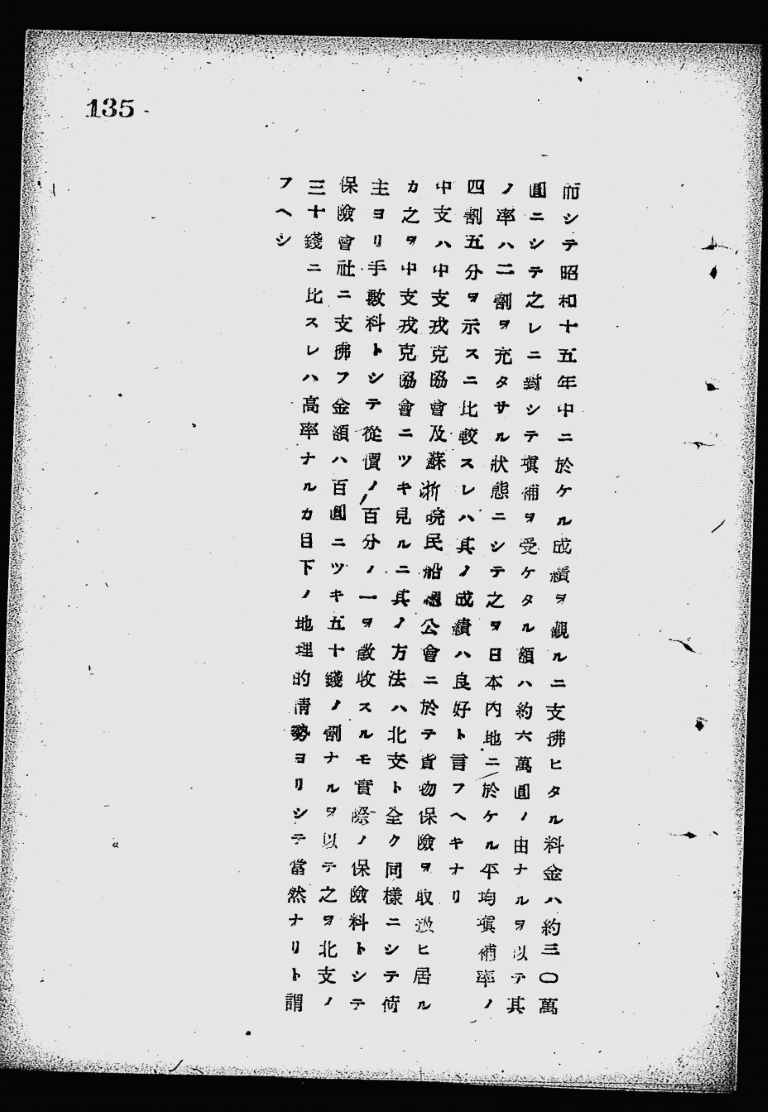 135
而シテ昭和十五年中ニ於ケル成績ヲ觀ルニ支拂ヒタル料金ハ約三〇萬
圓ニシテ之レニ對シテ塡補ヲ受ケタル額ハ約六萬圓ノ由ナルヲ以テ其
ノ率ハ二割ヲ充タサル狀態ニシテ之ヲ日本內地ニ於ケル平均塡補率ノ
四割五分ヲ示スニ比較スレハ其ノ成績ハ良好ト言フヘキナリ
中支ハ中支戎克協會及蘇浙皖民船總公會ニ於テ貨物保險ヲ取扱ヒ居ル
カ之ヲ中支戎克協會ニツキ見ルニ其ノ方法ハ北支ト全ク同樣ニシテ荷
主ヨリ手數料トシテ從價ノ百分ノ一ヲ徵收スルモ實際ノ保險料トシテ
保險會社ニ支拂フ金額ハ百圓ニツキ五十錢ノ割ナルヲ以テ之ヲ北支ノ
三十錢ニ比スレハ高率ナルカ目下ノ地理的情勢ヨリシテ當然ナリト謂
フヘシ